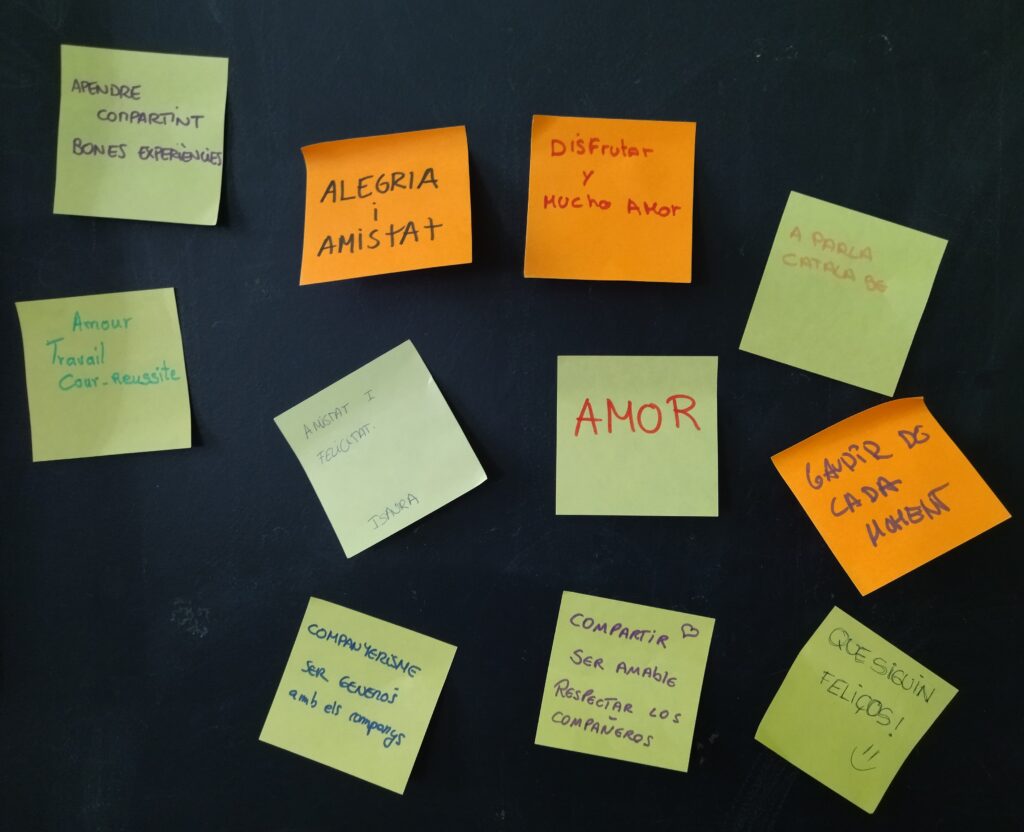 APENDRE
COMPARTINT
BONES EXPERIÈNCIES
ALEGRIA
i
AMISTAT
DISFrutar
y
Mucho AMor
A PARLA
CATALA BE
Amour
Travail
Cour-Reussite
AMISTAT I
FELICITAT.
ISAURA
AMOR
GAUDIR DE
CADA
MOMENT
COMPANYERISME
SER GENERÓS
amb els companys
COMPARTIR ♡
SER AMABLE
RESPECTAR LOS
COMPAÑEROS
QUE SIGUIN
FELIÇOS!